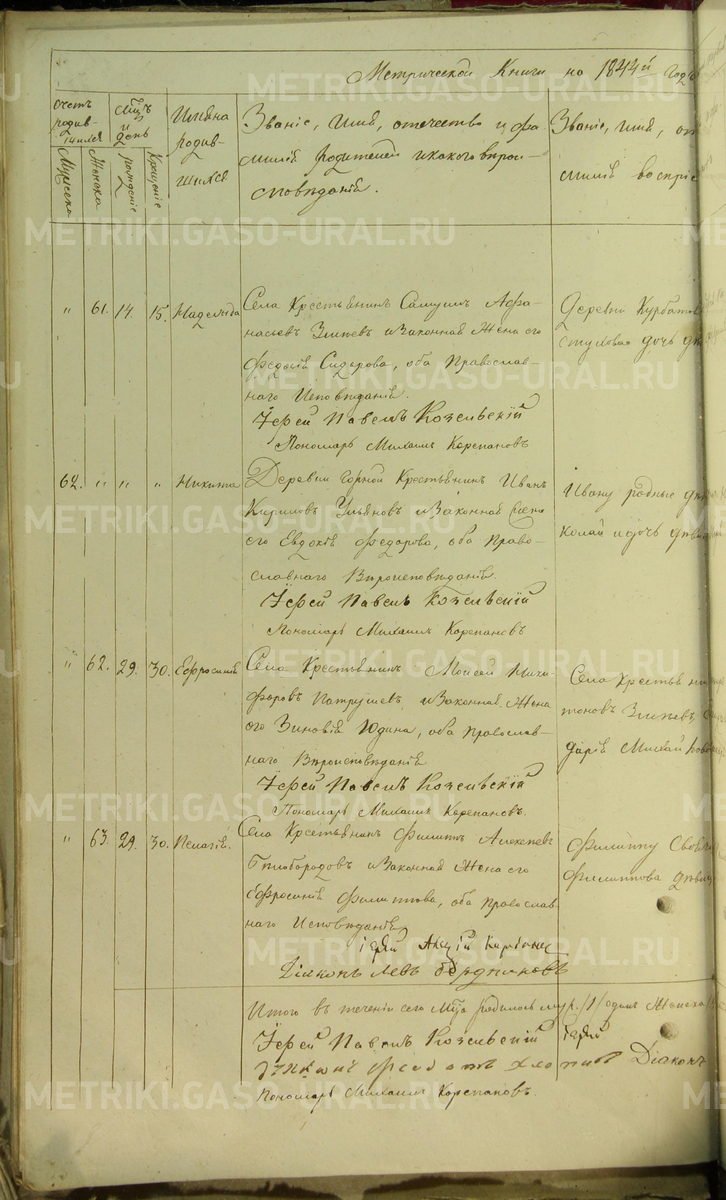 Метрической Книги на 1844й годъ
счетъ родив-шихся
Мцъ и день
Имѣна родив-шихся
Званіе, имя, отечество и фа-
милія родителей и какого вѣрои-
сповѣданія.
Званіе, имя, от
милія воспріе
Мужеска
Женска
рожденіе
Крещеніе
" 61. 14 15. Надежда
Села Крестьянинъ Самуилъ Афа-
насьевъ Зыневъ и Законная Жена его
Федосія Сидорова, оба Православ-
наго Исповѣданія.
Іерей Павелъ Козельскій
Пономарь Михаилъ Корепановъ
Деревни Курбатов
стуловая дочь дѣ
62. " " " Никита
Деревни Горной Крестьянинъ Иванъ
Кириловъ Ульяновъ и Законная Жена
его Евдокія Федорова, оба Право-
славнаго Вѣроисповѣданія
Іерей Павелъ Козельскій
Пономарь Михаилъ Корепановъ
Ивану родные
колай и дочь дѣвица
" 62. 29. 30. Ефросинія
Села Крестьянинъ Моисей Ники-
форовъ Патрушевъ и Законная Жена
его Зиновія Юдина, оба Православ-
наго Вѣроисповѣданія
Іерей Павелъ Козельскій
Пономарь Михаилъ Корепановъ.
Села Крестьянин
тоновъ Зыневъ
дарія Михай
" 63. 29. 30. Пелагія.
Села Крестьянинъ Филиппъ Алексѣевъ
Бѣлобородовъ и Законная Жена его
Ефросинія Филиппова, оба Православ-
наго Исповѣданія
іерей
Діаконъ Левъ
Филиппу
Филиппова дѣвица
Итого въ теченіи сего Мца родилось муж. /1/ одинъ Женска
Іерей Павелъ Козельскій іерей
Діаконъ
Пономарь Михаилъ Корепановъ.
METRIKI.GASO-URAL.RU